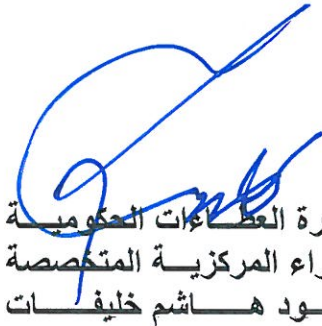 رة العطاءات الحكومية
راء المركزية المتخصصة
ود هاشم خليفات